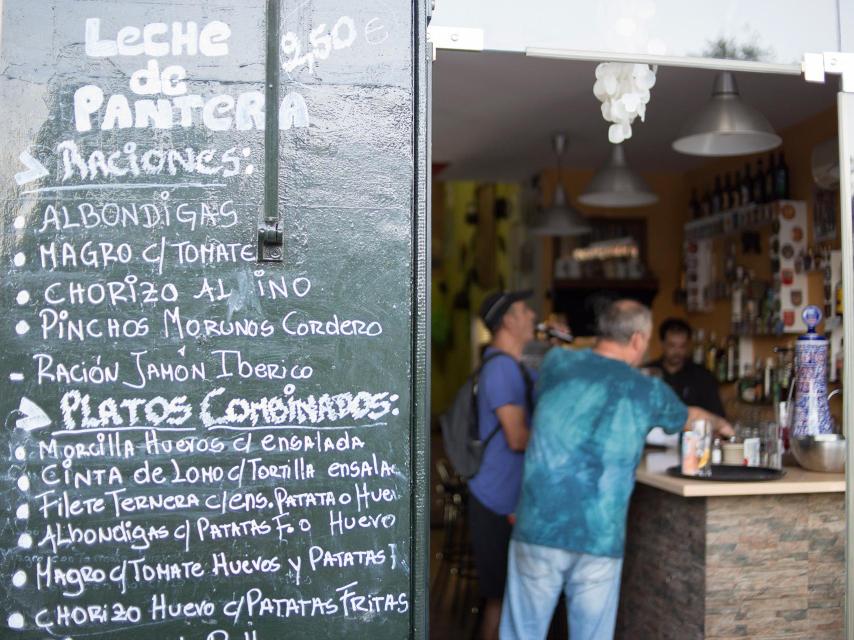 Leche 2,50 €
de
PANTERA
> RACIONES:
• ALBONDIGAS
• MAGRO C/TOMATE
• CHORIZO AL INO
• PINCHOS MORUNOS CORDERO
- RACIÓN JAMÓN IBERICO
> PLATOS COMBINADOS:
• MORCILLA HUEVOS C/ ENSALADA
• CINTA de LOMO C/TORTILLA ENSALA
• FILETE TERNERA C/ENS. PATATA O HUEV
• ALBONDIGAS C/ PATATAS F. O HUEVO
• MAGRO C/TOMATE HUEVOS Y PATATAS F
• CHORIZO HUEVO C/PATATAS FRITAS